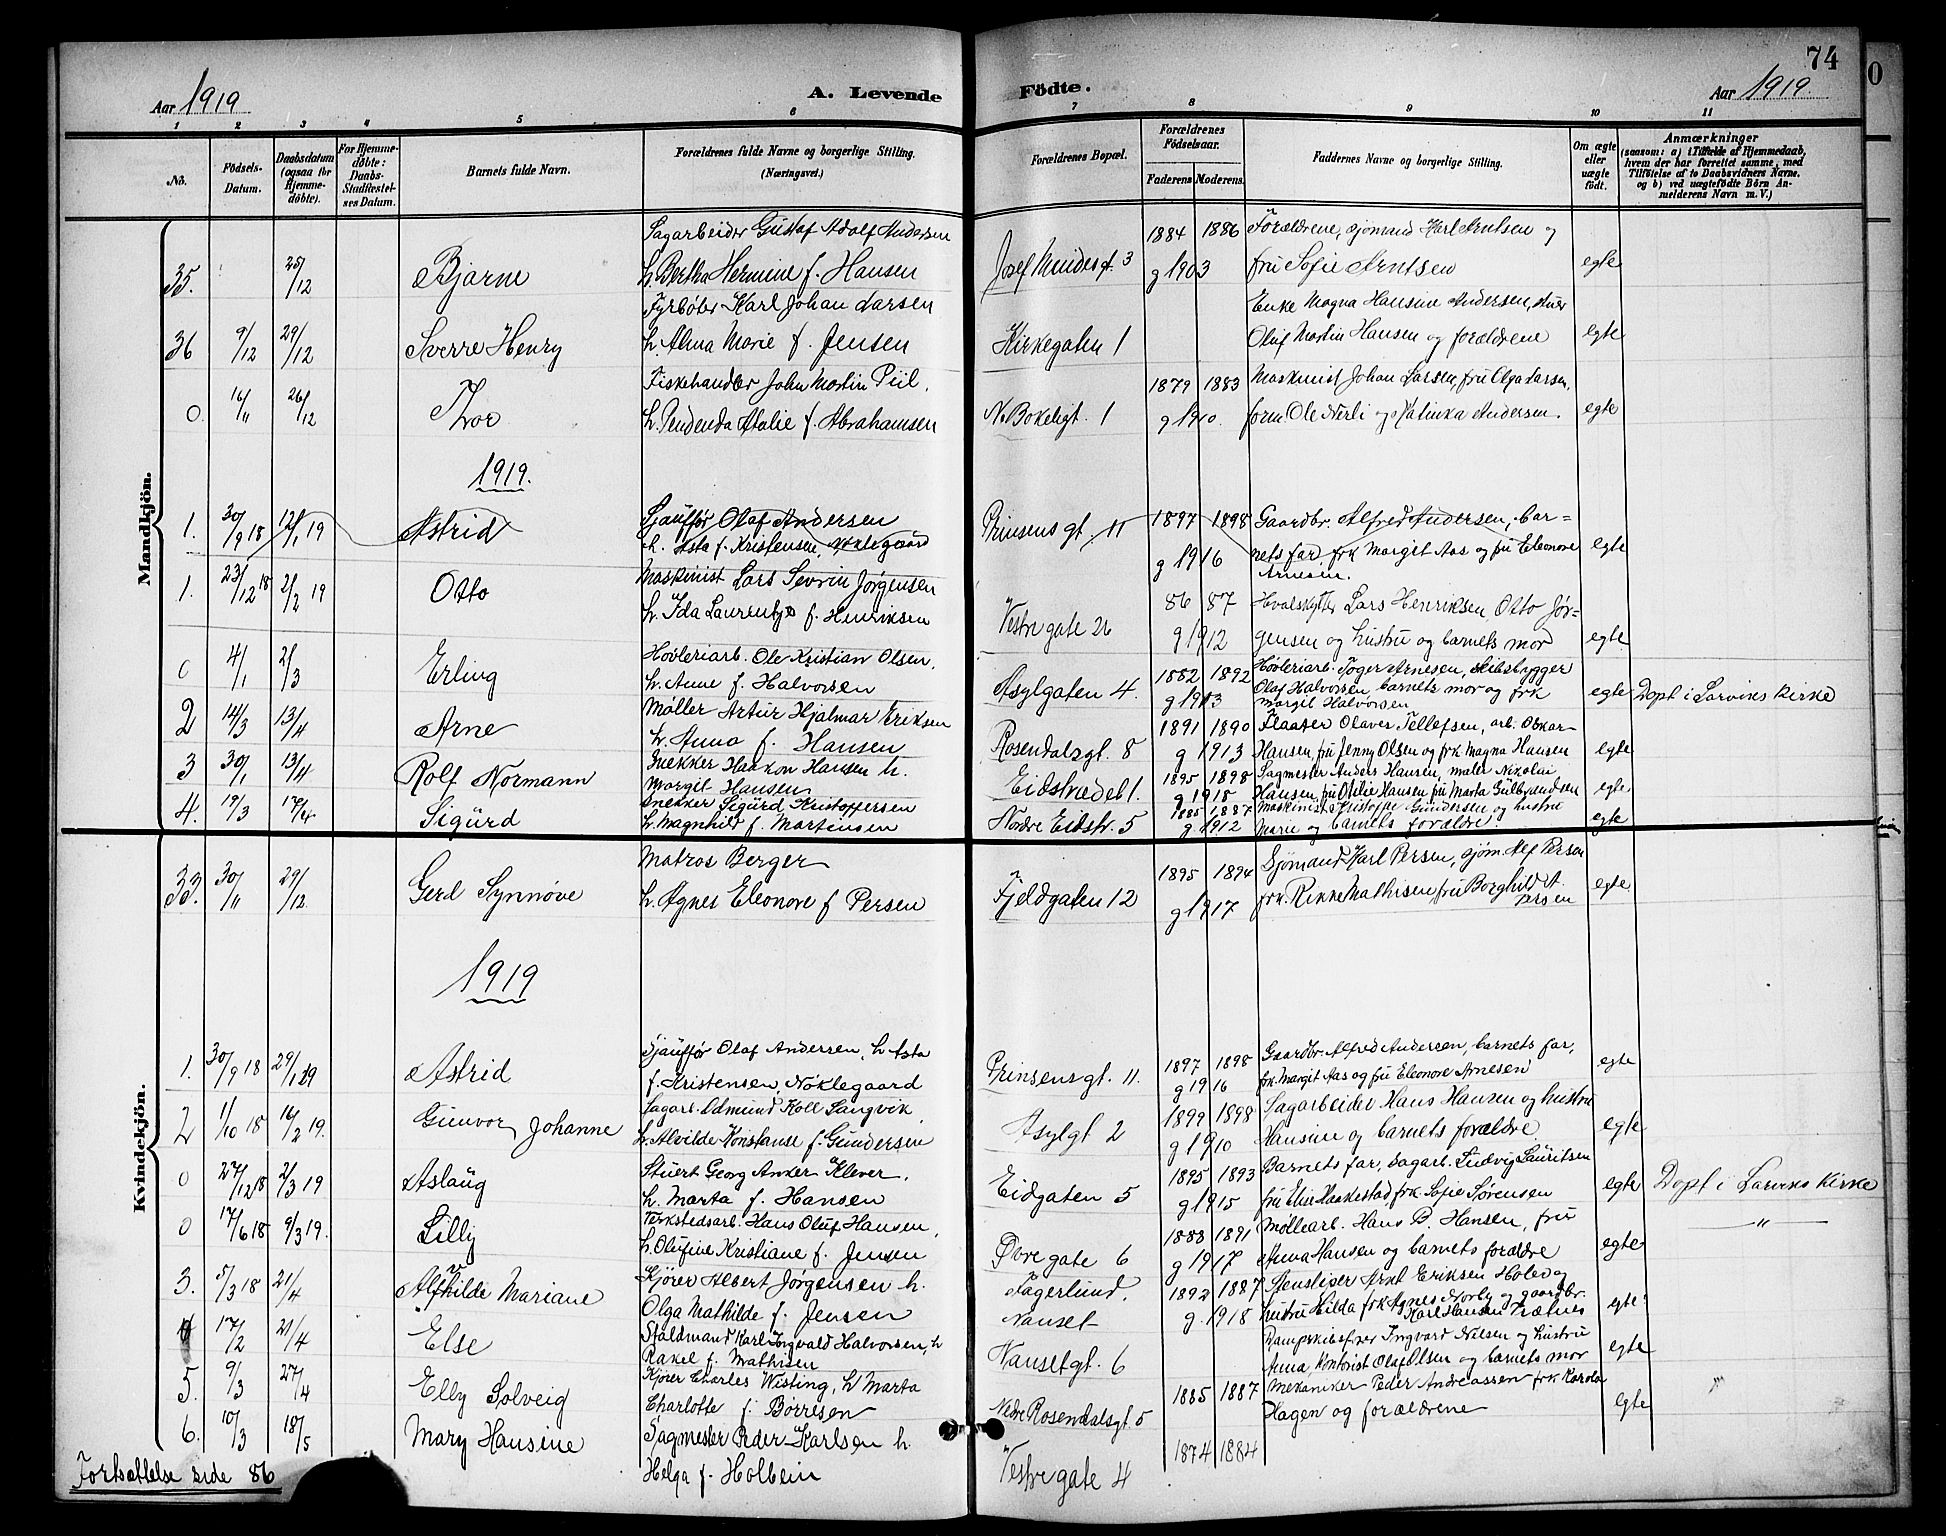 74
Aar 1919
A. Levende
Födte.
Aar 1919.
1 2 3 4 5 6 7 8 9 10 11
No.
Födsels-Datum.
Daabsdatum (ogsaa for Hjemme-döbte).
For Hjemme-döbte: Daabs-Stadfæstel-ses Datum.
Barnets fulde Navn.
Forældrenes fulde Navne og borgerlige Stilling. (Næringsvei.)
Forældrenes Bopæl.
Forældrenes Födselsaar.
Faderens Moderens.
Faddernes Navne og borgerlige Stilling.
Om ægte eller uægte födt.
Anmærkninger
(saasom: a) i Tilfælde af Hjemmedaab, hvem der har forrettet samme, med Tilföielse af to Daabsvidners Navne, og b) ved uægtefödte Börn An-melderens Navn m. V.)
Mandkjön.
35. 25/12 Bjarne Sagarbeider Gustaf Adolf Andersen
h. Bertha Hermine f. Hansen Josef 3 1884 1886 g 1903 Forældrene, sjömand Karl Arntsen og
fru Sofie Arntsen egte
36 9/12 29/12 Sverre Henry Fyrböter Karl Johan Larsen
h. Alma Marie f. Jensen Kirkegaten 1 Enke Magna Hansine Andersen, stuer
Oluf Martin Hansen og forældrene egte
0. 16/11 26/12 Thor Fiskehandler John Martin Piil.
h. Atalie f. Abrahamsen N. Bökeligt. 1 1879 1883 g 1910. Maskinist Johan Larsen, fru Olga Larsen,
form. Ole Nerli og Katinka Andersen. egte
1919.
1. 30/9 18 12/1 19 Astrid Sjauffør Olaf Andersen
h. Asta f. Kristensen, Nøklegaard Prinsensgt. 11 1897 1898 g 1916 Gaardbr. Alfred Andersen, bar=
nets far frk Margit Aas og fru Eleonore
Arnesen. egte
1. 23/12 18 2/2 19 Otto Maskinist Lars Sevrin Jørgensen
h. Ida f. Henriksen Vestre gate 26 86 87 g 1912 Hvalskytter Lars Henriksen, Otto Jør-
gensen og hustru og barnets mor egte
0 4/1 2/3 Erling Høvleriarb. Ole Kristian Olsen.
h. Anne f. Halvorsen Asylgaten 4. 1882 1892 g 1913 Høvleriarb. Toger Arnesen, skibsbygger
Olaf Halvorsen, barnets mor og frk
Margit Halvorsen egte Døpt i Larviks kirke
2 14/3 13/4 Arne Møller Artur Hjalmar Eriksen
h. Anna f. Hansen Rosendalsgt. 8 1891 1890 g 1913 Flaaser Olaver Tellefsen, arb. Oskar
Hansen, fru Jenny Olsen og frk Magna Hansen egte
3 30/1 13/4 Rolf Normann Snekker Haakon Hansen h.
Margit Hansen Eidstrædet 1. 1895 1898 g 1918 Sagmester Anders Hansen, maler Nikolai
Hansen, fru Otilie Hansen fru Marta Gulbrandsen egte
4. 19/3 17/4 Sigurd Snekker Sigurd Kristoffersen
h. Magnhild f. Martinsen Nordre Eidstr. 5 1885 1887 g 1912 Maskinist Kristoffer Gundersen og hustru
Marie og barnets forældre. egte
Kvindekjön.
33. 30/11 29/12 Gerd Synnöve Matros Berger
h. Agnes Eleonore f Persen Fjeldgaten 12 1895 1894 g 1917 Sjömand Karl Persen, sjöm. Alf Persen
frk. Rikke Mathisen, fru Borghild A.
Persen egte
1919
1. 30/9 18 29/1 19 Astrid Sjauffør Olaf Andersen, h Asta
f. Kristensen, Nøklegaard Prinsensgt. 11. 1897 1898 g 1916 Gaardbr. Alfred Andersen, barnets far,
frk. Margit Aas og fru Eleonore Arnesen egte
2 1/10 18 16/2 19. Gunvor Johanne Sagarb. Edmund Koll Langvik
h. Alvilde Konstanse f. Gundersen Asylgt 2 1899 1898 g 1910 Sagarbeider Hans Hansen og hustru
Hansine og barnets forældre egte
0 27/12 18 2/3 19 Aslaug Stuert Georg Anker Klever.
h. Marta f. Hansen Eidgaten 5 1895 1893 g 1915 Barnets far, sagarb. Ludvig Lauritsen
fru Elin Haakestad frk Sofie Sørensen egte Døpt i Larviks kirke
0 17/6 18 9/3 19. Lilly Verkstedsarb. Hans Oluf Hansen,
h. Olufine Kristiane f. Jensen Øvre gate 6 1883 1891 g 1917 Møllearb. Hans B. Hansen, fru
Anna Hansen og barnets forældre egte — " —
3. 5/3 18 21/4 Alfhilde Mariane Kjører Albert Jørgensen h.
Olga Mathilde f. Jensen Fagerlund, Nanset 1892 1887 g. 1918 Stensliper Arnt Eriksen Hole og
hustru Hilda frk Agnes Norby og gaardbr.
Karl Hansen egte
4 17/2 21/4 Else Staldmand Karl Ingvald Halvorsen, h
Rakel f. Mathisen Nansetgt. 6 Dampskibsfører Ingvard Nilsen og hustru
Anna, Kontorist Olaf Olsen og barnets mor egte
5. 9/3 27/4 Elly Solveig Kjører Charles Wisting, h Marta
Charlotte f. Børresen Nedre Rosendalsgt 5 1885 1887 Mekaniker Peder Andreassen frk Karola
Hagen og forældrene egte
6. 10/3 18/5 Mary Hansine Sagmester Peder Karlsen h.
Helga f. Holbein Vestre gate 4 1874 1884
Fortsættelse side 86